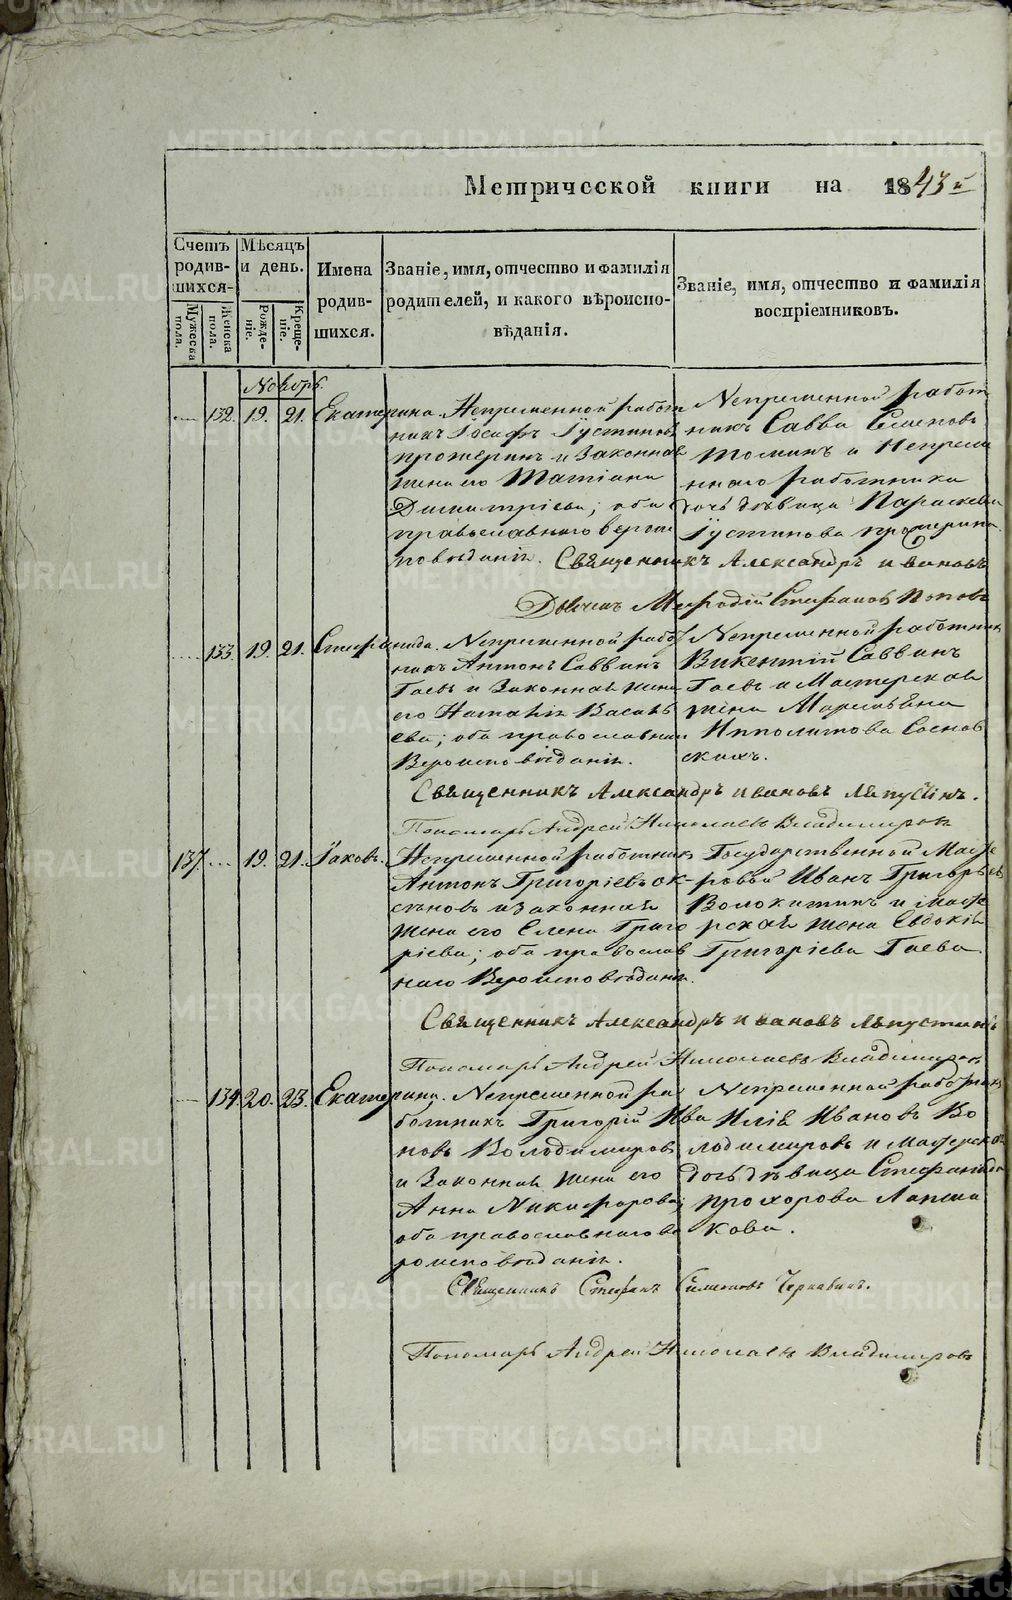 Метрической книги на 1843й
Счетъ родив-шихся
Мѣсяцъ и день.
Имена родив-шихся.
Званіе, имя, отчество и фамилія родителей, и какого вѣроиспо-вѣданія.
Званіе, имя, отчество и фамилія воспріемниковъ.
Мужеска пола.
Женска пола.
Рожде-ніе.
Креще-ніе.
Ноябрь.
132. 19. 21. Екатерина. Непременной работ
никъ Іосифъ Іустиновъ
и Законная
жена его Татіана
Димитріева; оба
православнаго верои
поведанія.
Непременной работ
никъ Савва Семеновъ
Томинъ и Непреме
ннаго работника
дочь девица Параскева
Іустинова
Священникъ Александръ Ивановъ
Меѳодій Стефановъ Поповъ
133. 19. 21. Стефанида. Непременной работ
никъ Антонъ Саввинъ
Гаевъ и Законная жена
его Наталія Василь
ева; оба православнаго
Вероисповѣданія.
Непременной работник
Викентій Саввинъ
Гаевъ и Мастерская
жена
Ипполитова Соснов
скихъ.
Священникъ Александръ Ивановъ Ляпустинъ.
Пономарь Андрей Николаевъ Владимировъ
137. 19. 21. Іаковъ. Непременной работник
Антонъ Григоріевъ Ок-
и Законная
жена его Елена Григо
ріева; оба православ
наго Вероисповѣданія.
Государственной Масте
ровой Иванъ Григорьевъ
Волокитинъ и Масте
рская жена Евдокія
Григоріева Гаева.
Священникъ Александръ Ивановъ Ляпустинъ
Пономарь Андрей Николаевъ Владимиров
134. 20. 23. Екатерина. Непременной ра
ботникъ Григорій Ива
новъ Володимировъ
и Законная жена его
Анна Никифорова;
оба православнаго ве
роисповѣданія.
Непременной работник
Илія Ивановъ Во
лодимировъ и Мастерска
дочь девица Стефанида
Прохорова Лапша
кова.
Священникъ Стефанъ Симеоновъ Чернавинъ.
Пономарь Андрей Николаевъ Владимировъ
METRIKI.GASO-URAL.RU